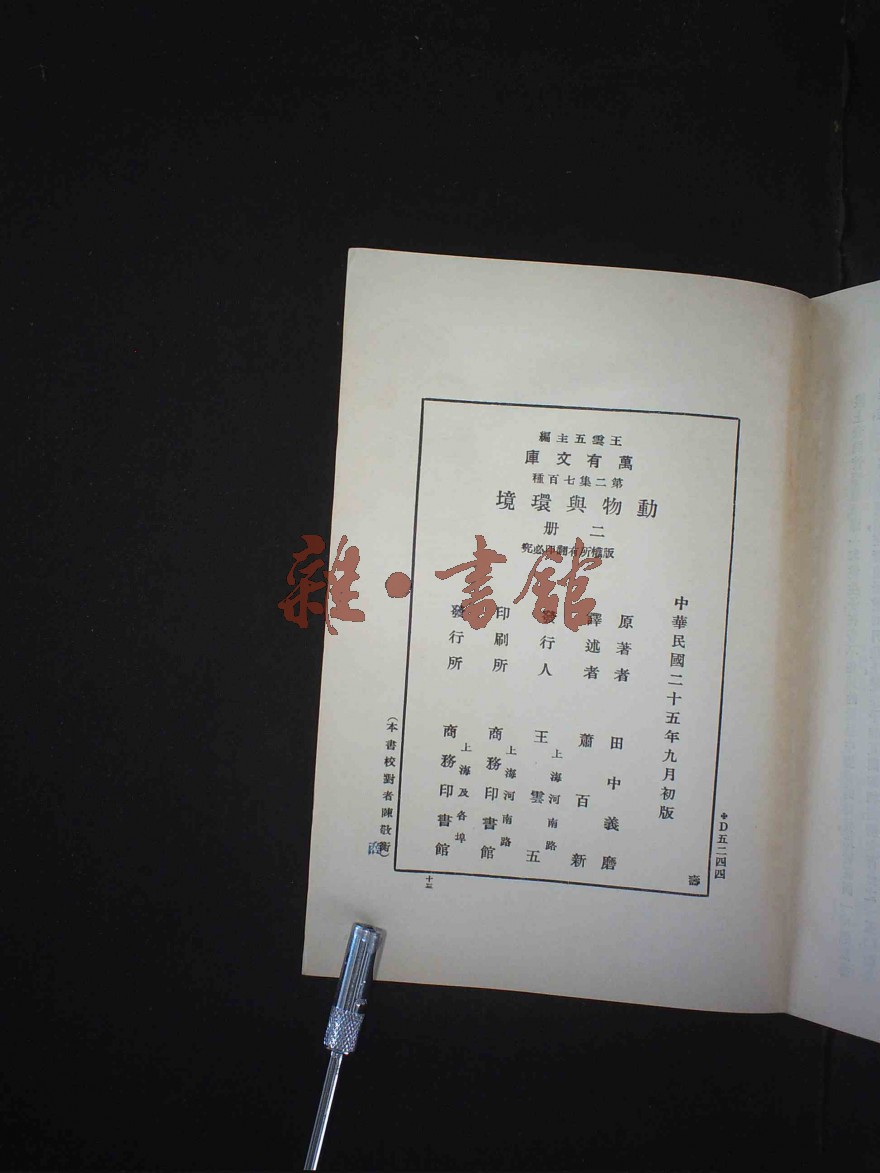 王雲五主編
萬有文庫
第二集七百種
動物與環境
二册
版權所有翻印必究
中華民國二十五年九月初版
原著者 田中義磨
譯述者 蕭百新
發行人 王雲五
上海河南路
印刷所 商務印書館
上海河南路
發行所 商務印書館
上海及各埠
(本書校對者陳敬衡)
D五二四四
壽
雜·書館